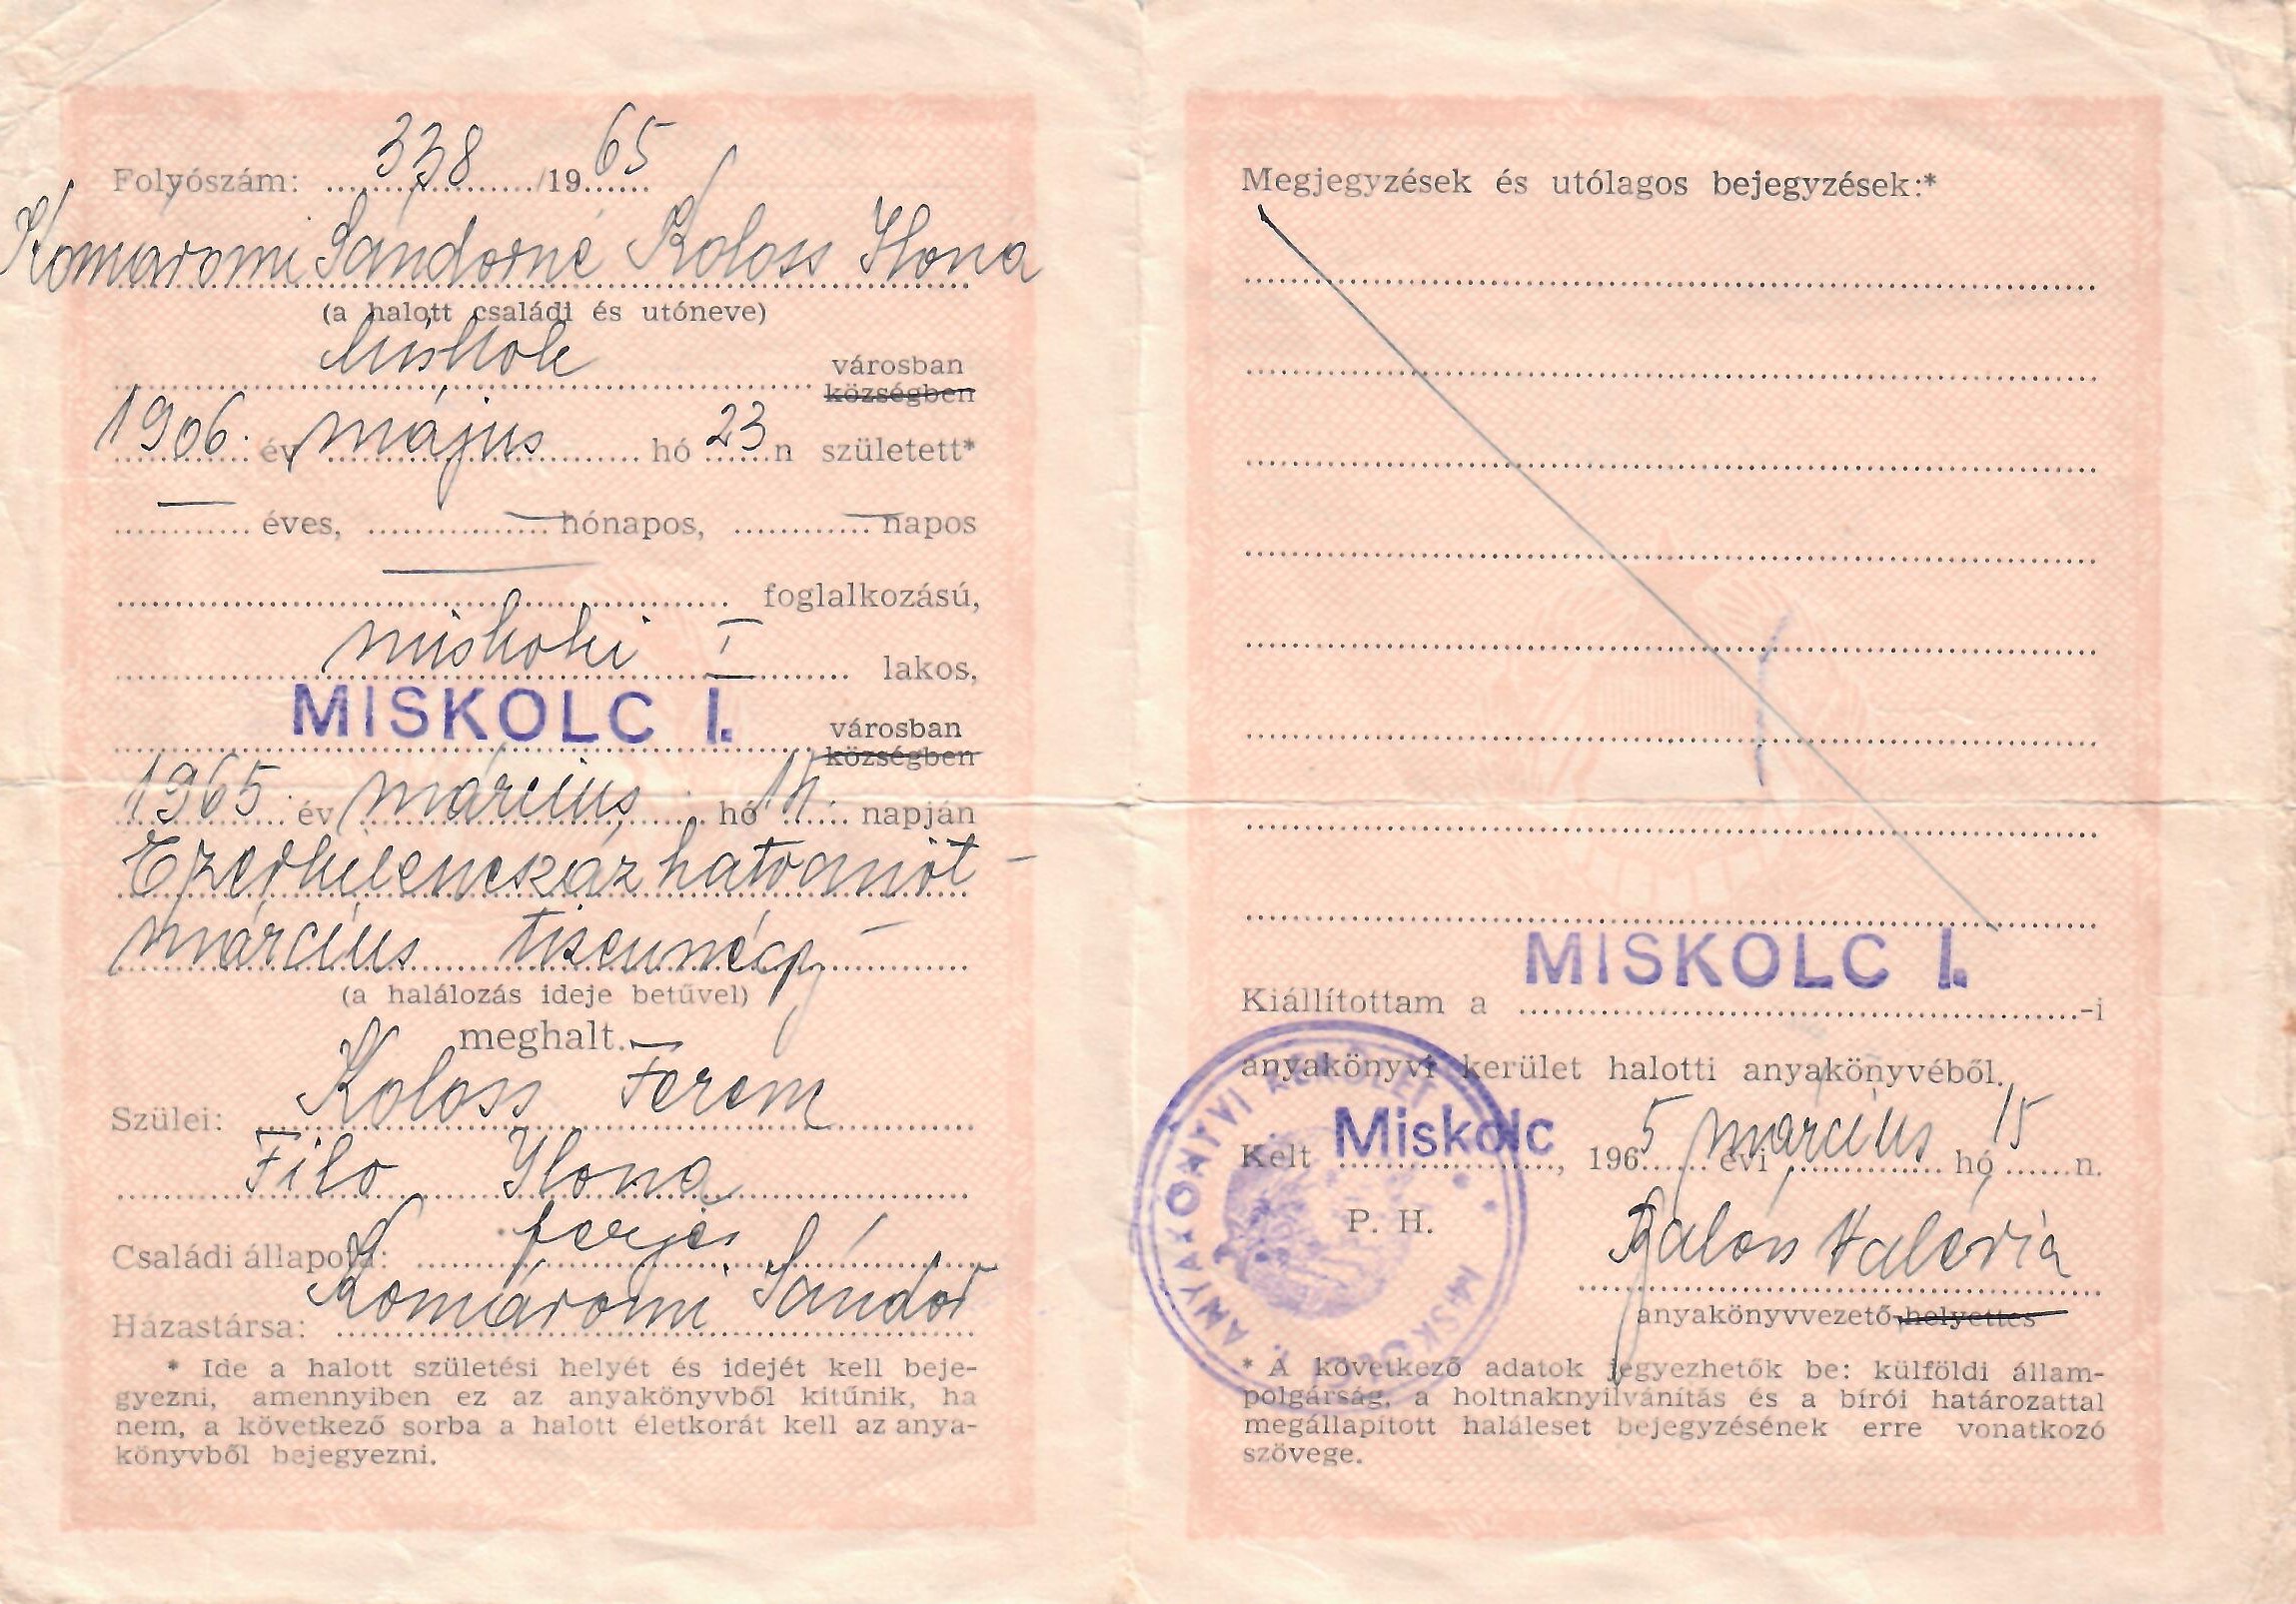 Folyószám: 338 /1965
Komáromi Sándorné Koloss Ilona
(a halott családi és utóneve)
Miskolc városban
községben
1906. év május hó 23 n született*
éves, hónapos, napos
foglalkozású,
miskolci I lakos,
MISKOLC I. városban
községben
1965. év március hó 14. napján
Ezerkilencszázhatvanöt –
március tizennégy –
(a halálozás ideje betűvel)
meghalt.
Szülei: Koloss Ferenc
Filo Ilona
Családi állapota: férjes
Házastársa: Komáromi Sándor
* Ide a halott születési helyét és idejét kell beje-
gyezni, amennyiben ez az anyakönyvből kitűnik, ha
nem, a következő sorba a halott életkorát kell az anya-
könyvből bejegyezni.
Megjegyzések és utólagos bejegyzések:*
MISKOLC I.
Kiállítottam a -i
anyakönyvi kerület halotti anyakönyvéből.
Kelt Miskolc, 1965 évi március hó 15 n.
P. H.
ANYAKÖNYVI KERÜLET MISKOLC
Valéria
anyakönyvvezető-helyettes
* A következő adatok jegyezhetők be: külföldi állam-
polgárság, a holtnaknyilvánítás és a bírói határozattal
megállapított haláleset bejegyzésének erre vonatkozó
szövege.